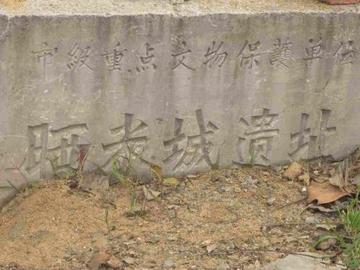 市級重点文物保護单位
晒袁城遗址